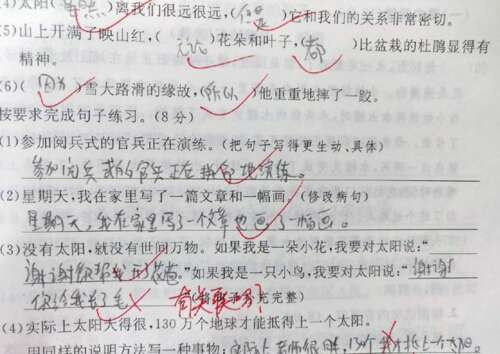 (4)太阳(虽然)离我们很远很远,(但是)它和我们的关系非常密切。
(5)山上开满了映山红,(无论)花朵和叶子,(都)比盆栽的杜鹃显得有
精神。
(6)(因为)雪大路滑的缘故,(所以)他重重地摔了一跤。
按要求完成句子练习。(8分)
(1)参加阅兵式的官兵正在演练。(把句子写得更生动、具体)
参加阅兵式的官兵正在地演练。
(2)星期天,我在家里写了一篇文章和一幅画。(修改病句)
星期天,我在家里写了一个文章也画了一幅画。
(3)没有太阳,就没有世间万物。如果我是一朵小花,我要对太阳说:“
谢谢你帮我”如果我是一只小鸟,我要对太阳说:“谢谢
你给我”(将句子补充完整)
有关联吗?
(4)实际上太阳大得很,130万个地球才能抵得上一个太阳。
用同样的说明方法写一种事物:实际上